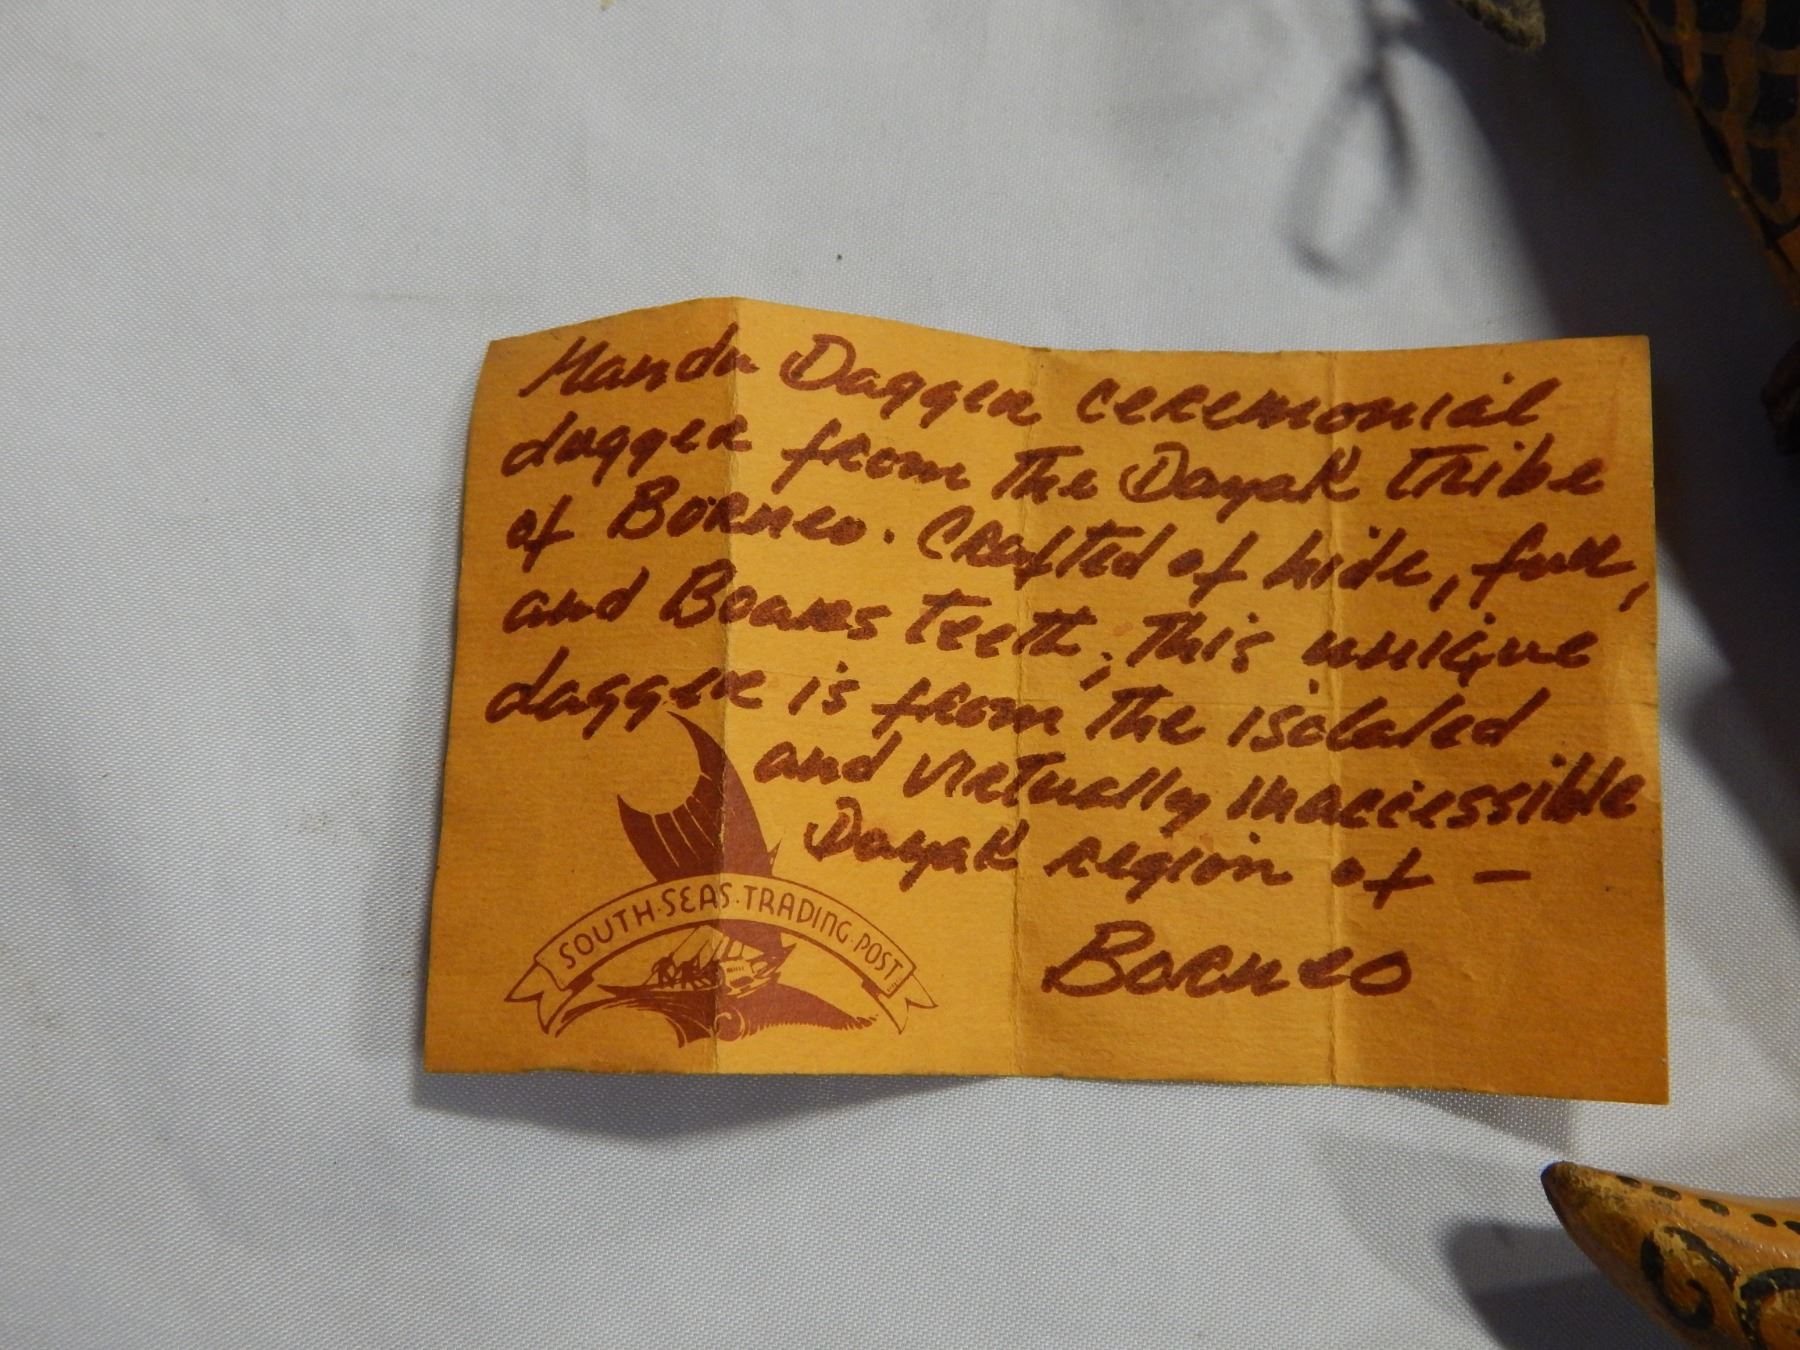 Mandu Dagger ceremonial
dagger from the Dayak tribe
of Borneo. Crafted of hide, fur,
and Boars teeth, this unique
dagger is from the isolated
and virtually inaccessible
Dayak region of —
Borneo
SOUTH·SEAS·TRADING·POST